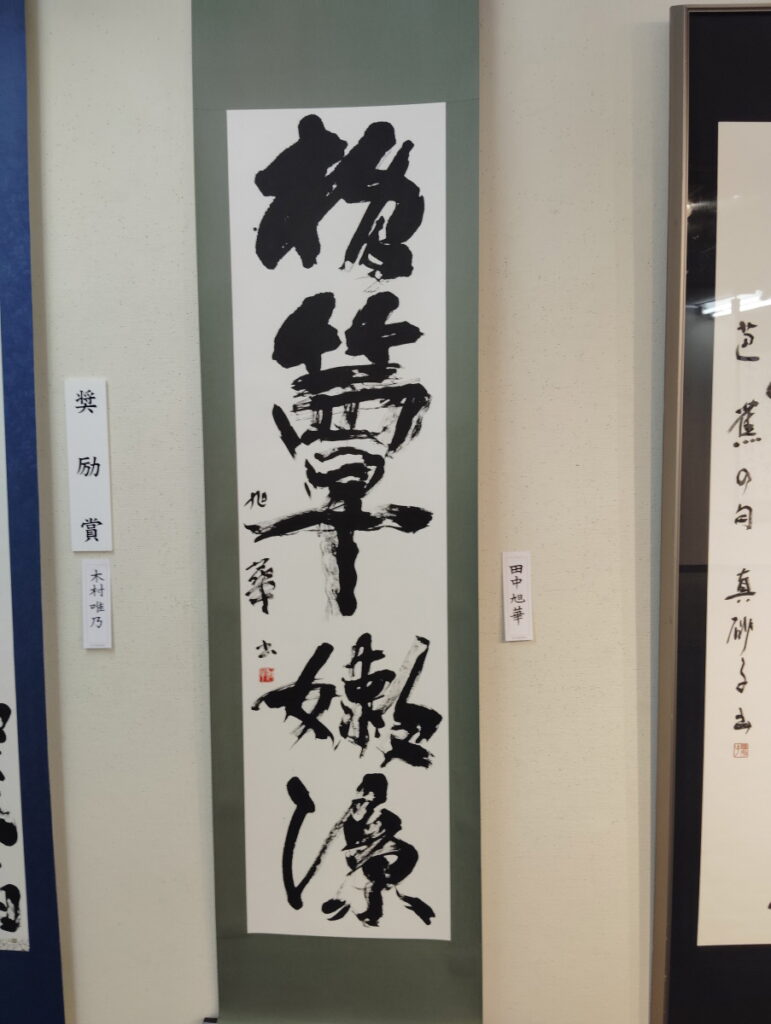 芭蕉の句 真砂子書
田中旭華
簟嫩涼
旭華書
奨励賞
木村唯乃